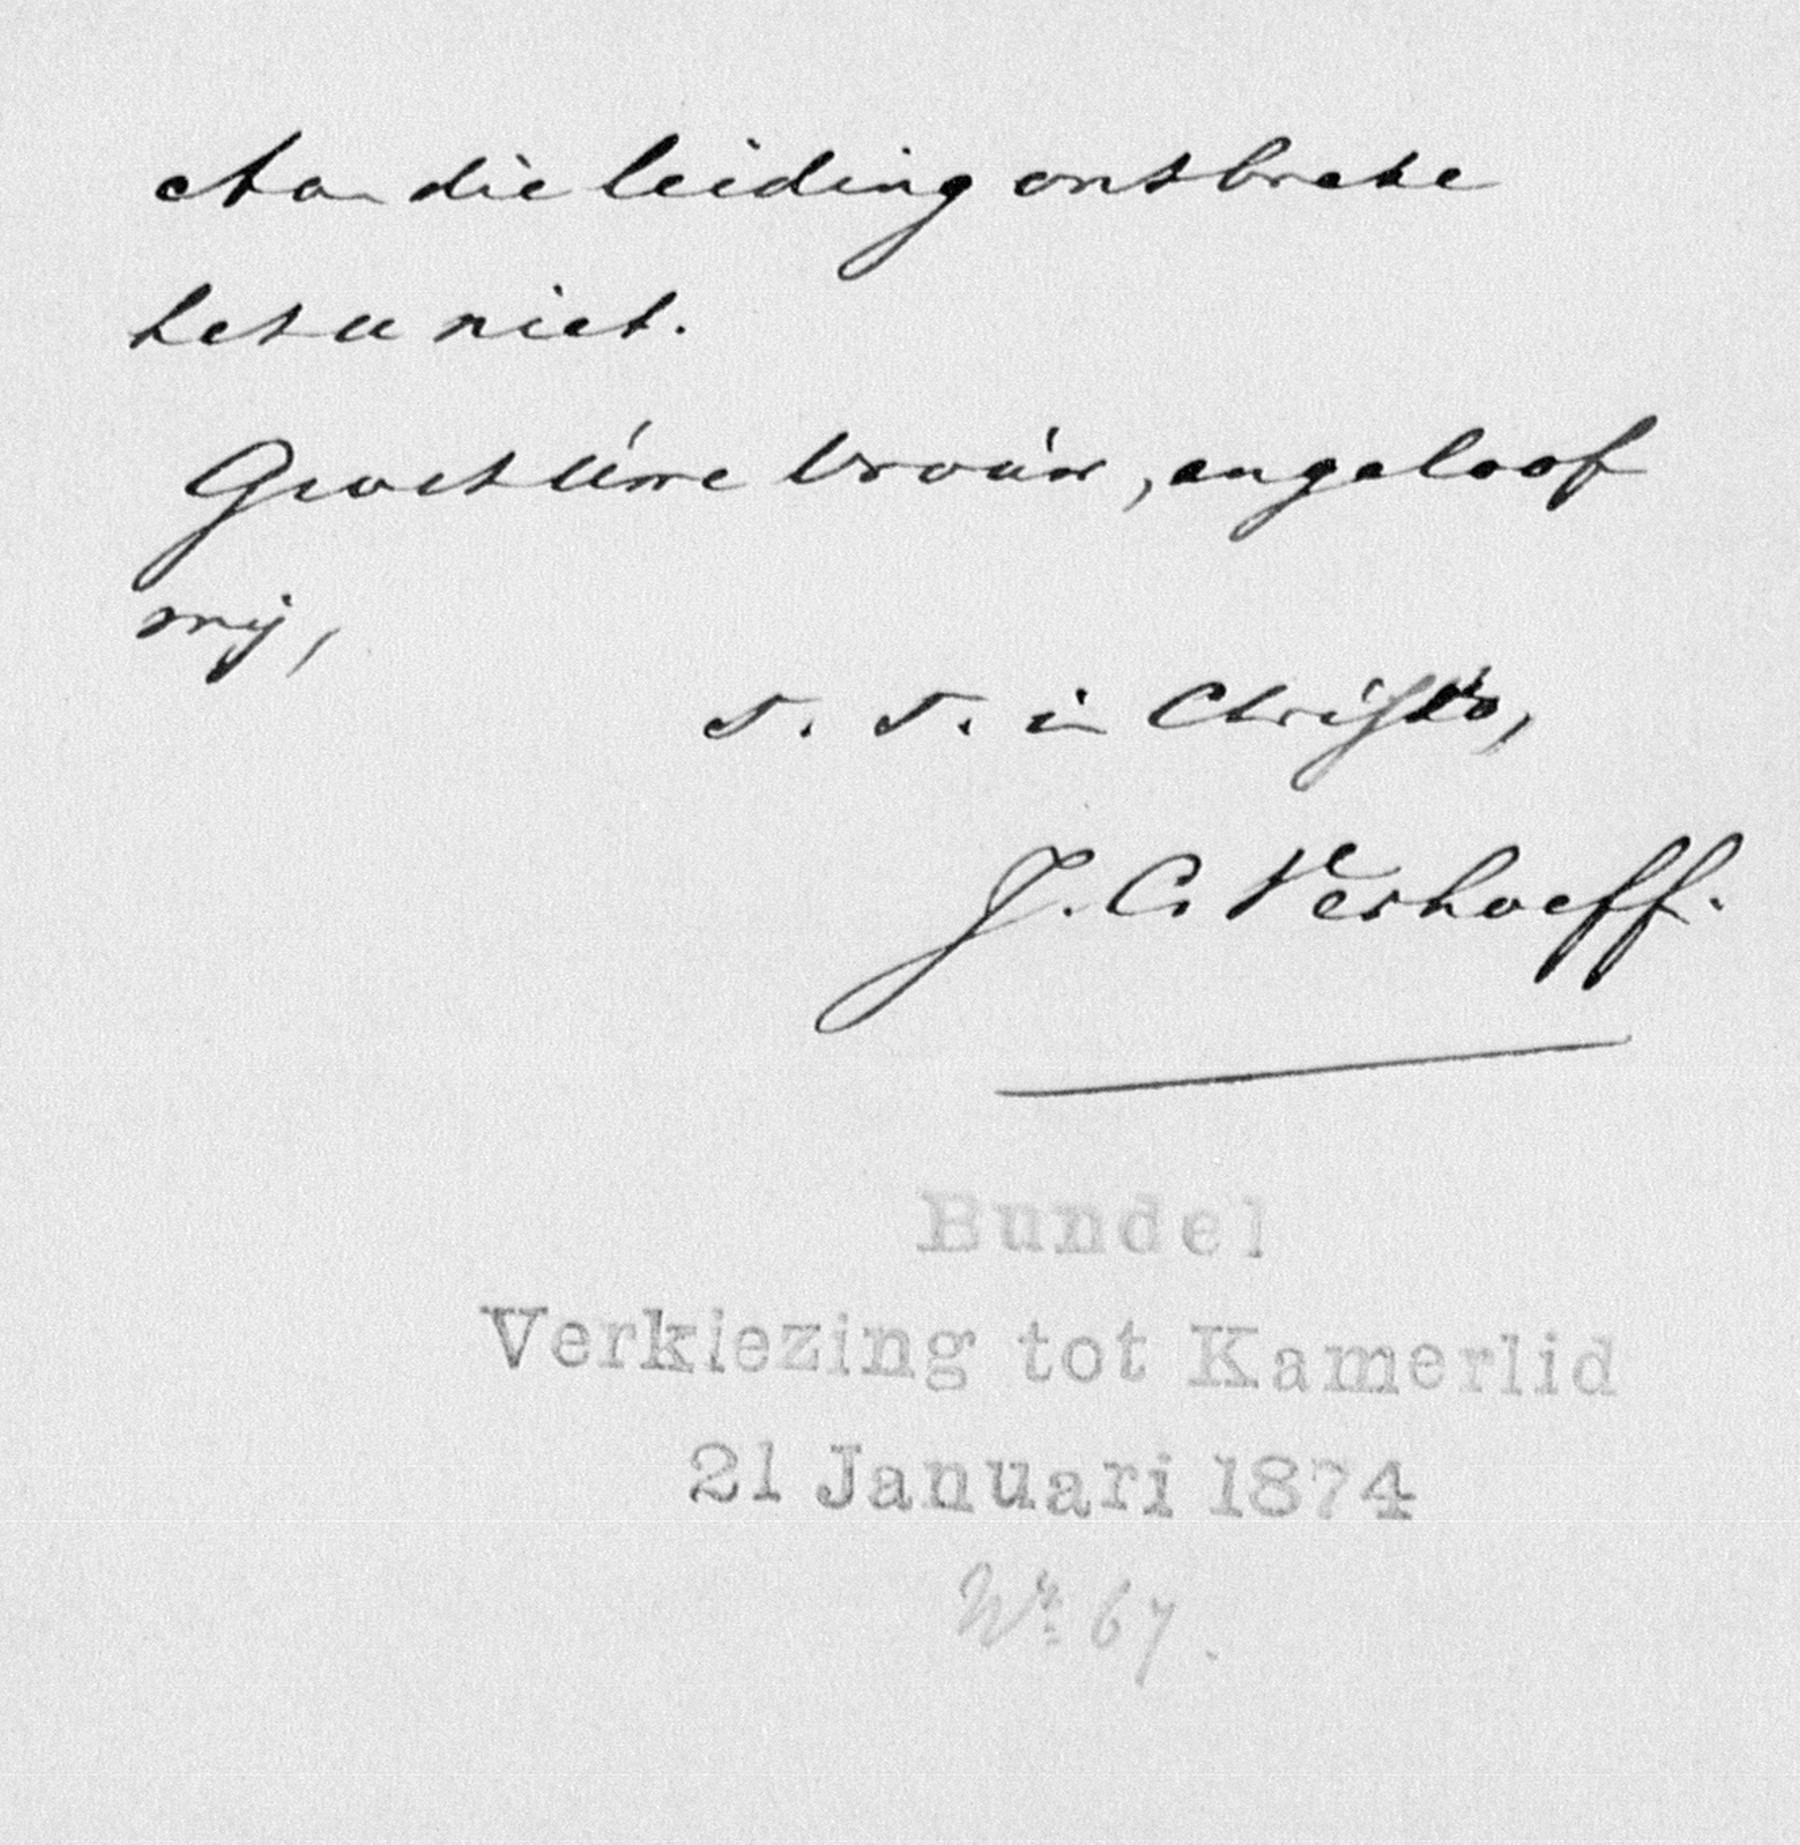 Aan die leiding ontbreke
het u niet.
Groet úwe vrouw, en geloof
mij,
T. T. in Christo,
J. C. Verhoeff.
Bundel
Verkiezing tot Kamerlid
21 Januari 1874
Nr. 67.